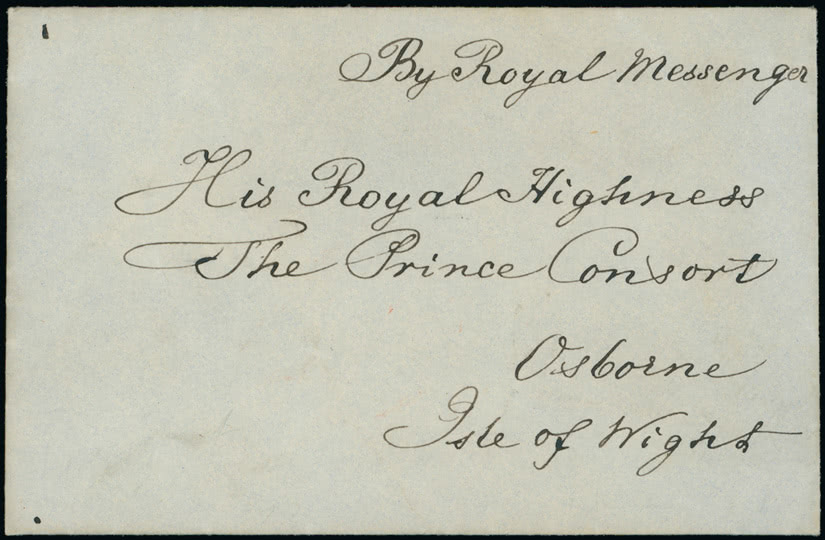 By Royal Messenger
His Royal Highness
The Prince Consort
Osborne
Isle of Wight